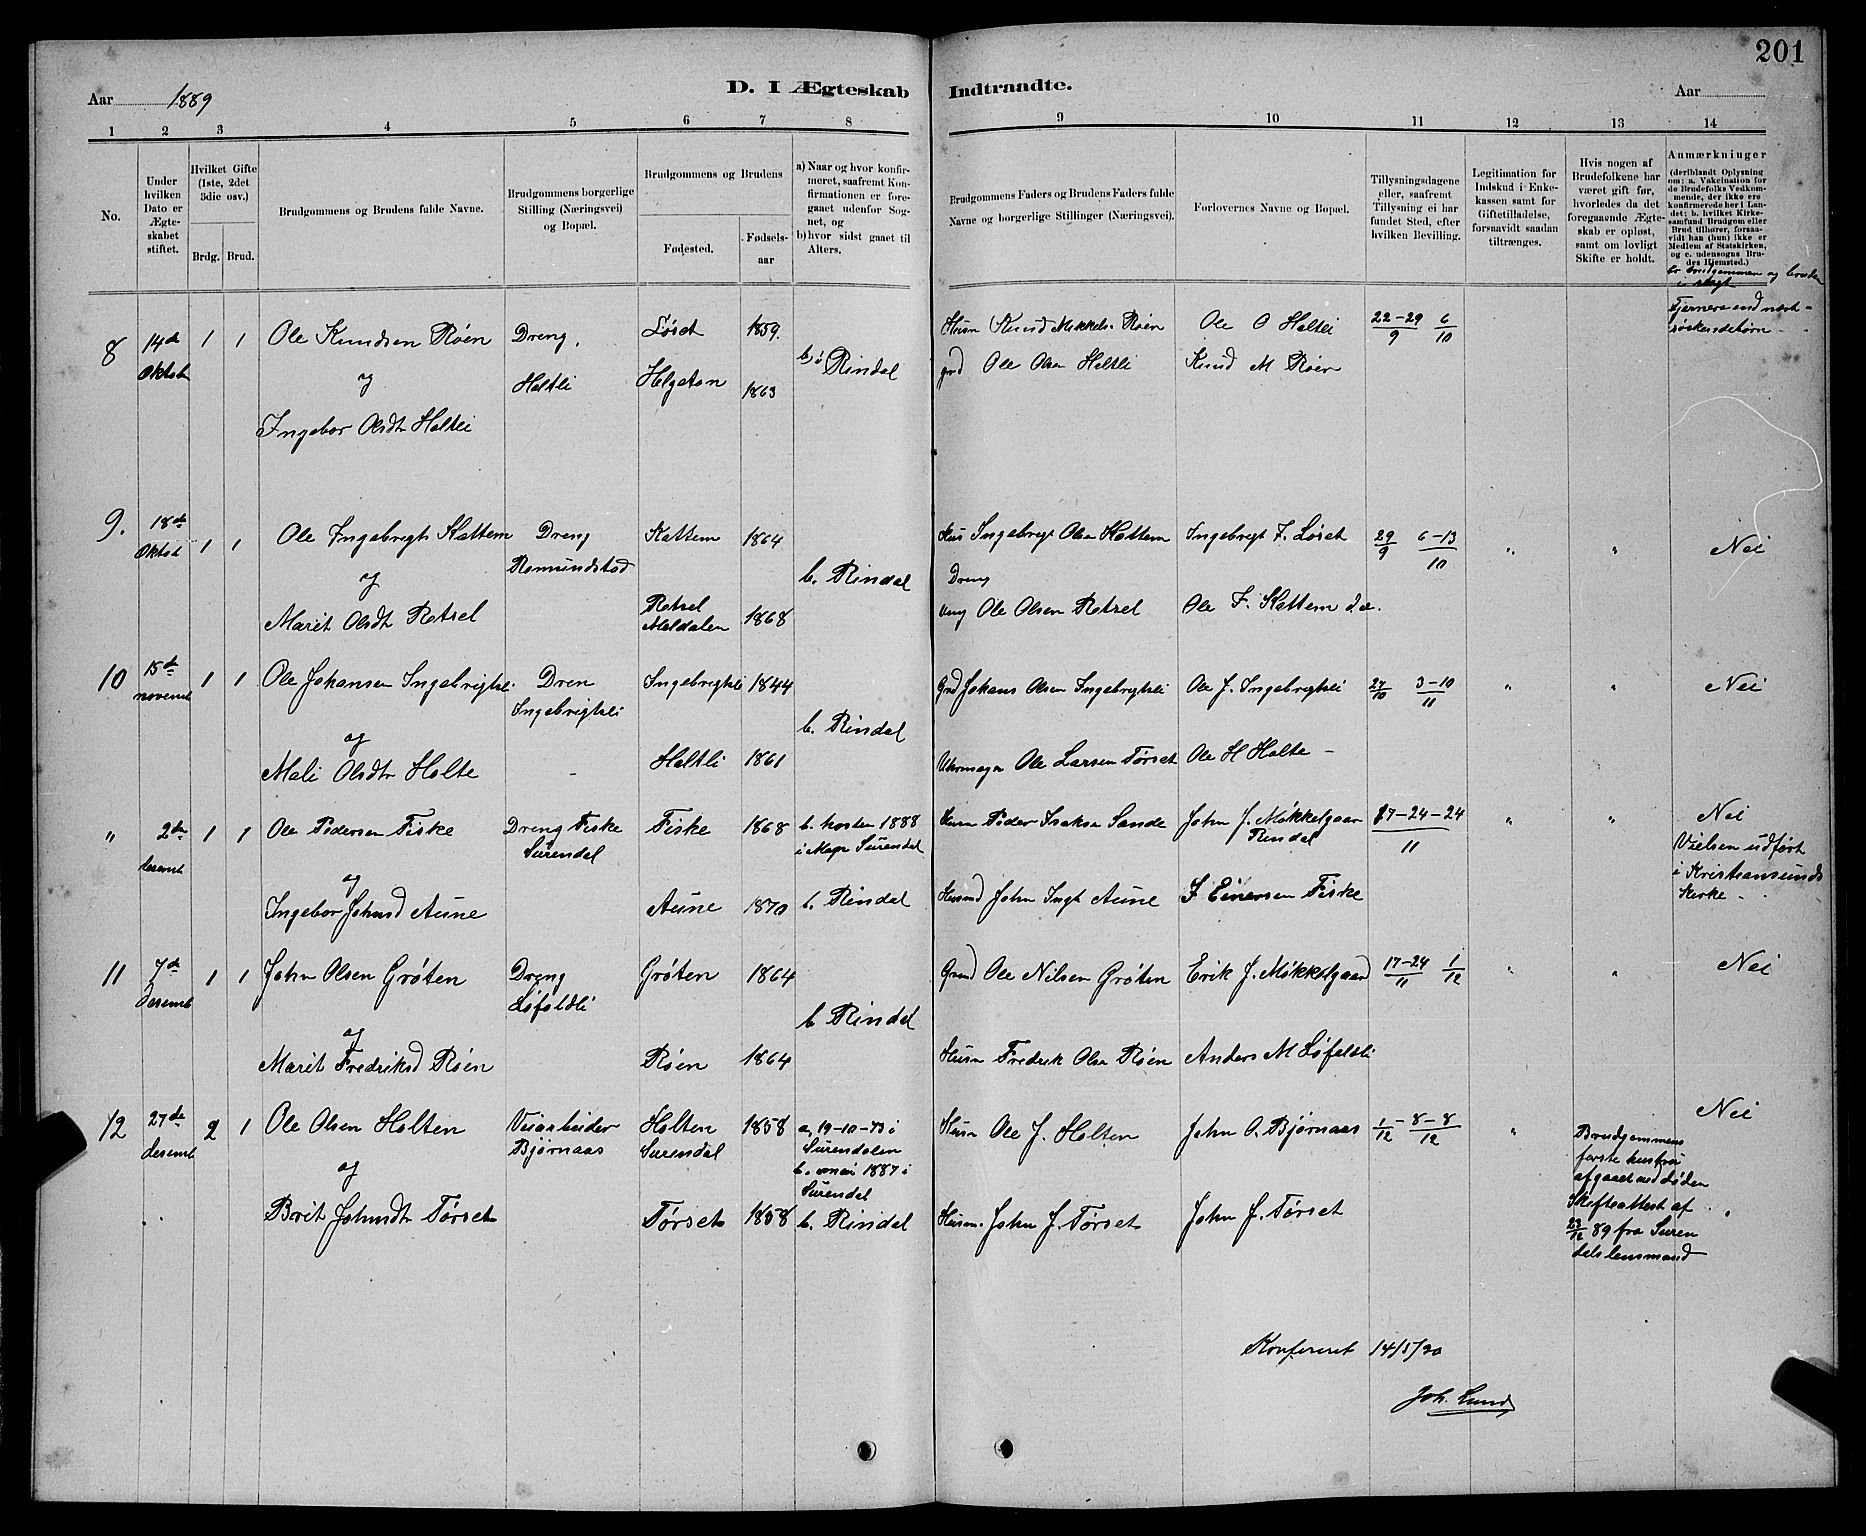 201
Aar 1889 D. I Ægteskab Indtraadte. Aar
1 2 3 4 5 6 7 8 9 10 11 12 13 14
No.
Under hvilken Dato er Ægteskabet stiftet.
Hvilket Gifte (1ste, 2det 3die osv.)
Brdg. Brud.
Brudgommens og Brudens fulde Navne.
Brudgommens borgerlige Stilling (Næringsvei) og Bopæl.
Brudgommens og Brudens
Fødested. Fødselsaar
a) Naar og hvor konfirmeret, saafremt Konfirmationen er foregaaet udenfor Sognet, og
b) hvor sidst gaaet til Alters.
Brudgommens Faders og Brudens Faders fulde Navne og borgerlige Stillinger (Næringsvei).
Forlovernes Navne og Bopæl.
Tillysningsdagene eller, saafremt Tillysning ei har fundet Sted, efter hvilken Bevilling.
Legitimation for Indskud i Enkekassen samt for Giftetilladelse, forsaavidt saadan tiltrænges.
Hvis nogen af Brudefolkene har været gift før, hvorledes da det foregaaende Ægteskab er opløst, samt om lovligt Skifte er holdt.
Anmærkninger (deriblandt Oplysning om: a. Vakcination for de Brudefolks Vedkommende, der ikke ere konfirmerede her i Landet; b. hvilket Kirkesamfund Brudgom eller Brud tilhører, forsaavidt han (hun) ikke er Medlem af Statskirken, og c. udensogns Brudes Hjemsted.)
Er brudgommen og bruden i slægt
8 14de Oktob 1 1 Ole Knudsen Røen Dreng, Løset 1859. Husm Knud Mikkels. Røen Ole O Holtli 22-29/9 6/10 Fjernere end næst-søskendebørn
og Holtli Helgeton 1863 b, i Rindal Ole Olsen Holtli Knud M Røen
Ingebor Olsdtr Holtli
9. 18de Oktob 1 1 Ole Ingebrigts Kattem Dreng Kattem 1864 Hus Ingebrigt Olsen Kattem Ingebrigt F. Løset 29/9 6-13/10 " " Nei
og Romundstad b. Rindal Dreng
Marit Olsdtr Rotsel Rotsel Meldalen 1868 Ole Olsen Rotsel Ole F. Kattem
10 15de novemb 1 1 Ole Johansen Ingebrigtsli Dren Ingebrigtsli 1844 Grd Johans Olsen Ingebrigtsli Ole J. Ingebrigtsli 27/10 3-10/11 " " Nei
og Ingebrigtsli b. Rindal
Mali Olsdtr Holte - Holtli 1861 Uhrmager Ole Larsen Tørset Ole H Holte -
" 2de desemb 1 1 Ole Pedersen Fiske Dreng Fiske Surendal Fiske 1868 b. høsten 1888 Husm Peder Isaksen Sande John J. Møkkelgaar Rindal 17-24-24/11 " " Nei
og i Mogn Surendal Vielsen udført i Kristiansunds Kirke -
Ingebor Johnsd Aune Aune 1870 b. Rindal Husmd John Ingb Aune J Einersen Fiske
11 7de Desemb 1 1 John Olsen Grøten Dreng Løfoldli Grøten 1864 Grmd Ole Nilsen Grøten Erik J. Møkkelgaard 17-24/11 1/12 " " Nei
og b Rindal
Marit Fredriksd Røen Røen 1864 Husm Fredrik Olsen Røen Anders M Løfoldli
12 27de desemb 2 1 Ole Olsen Holten Veiarbeider Bjørnaas Holten Surendal 1858 a, 19-10-73 i Surendalen Husm Ole J. Holten John O. Bjørnaas 1/12-8-8/12 " Nei
og b. mai 1887 i Surendal
Brit Johnsdtr Tørset Tørset 1858 b. Rindal Husm. John J. Tørset John J. Tørset
Brudgommens
første hustru
afgaaet ved døden
Skifteattest af
23/12 89 fra Suren
dals lensmand
Konfereret 14/5/20
Joh. Lund